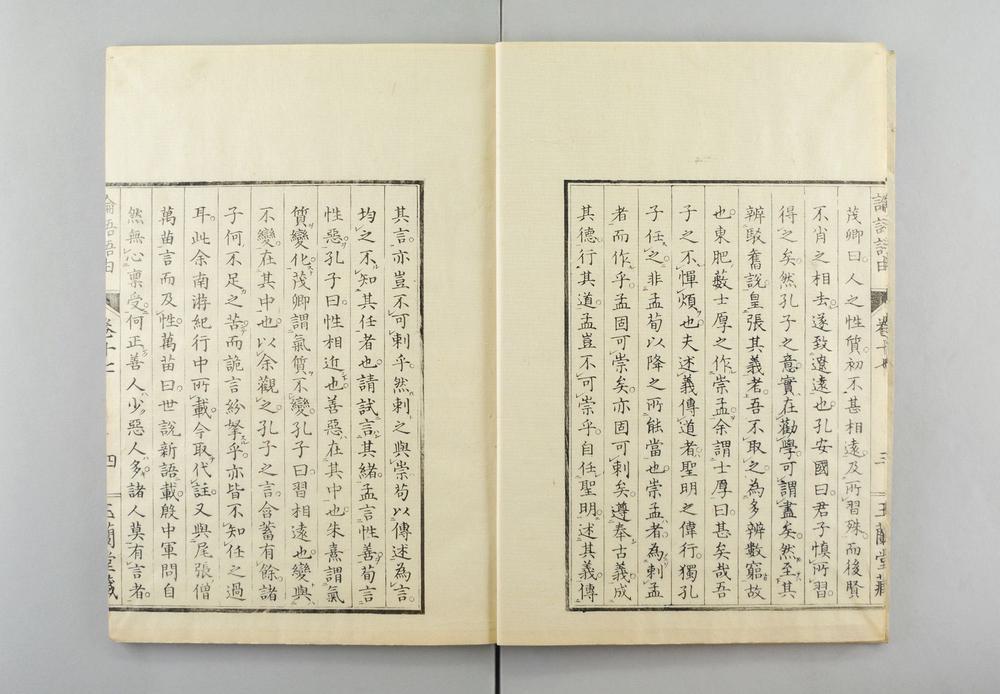 論語語由 卷十七 三 玉蘭堂藏
茂卿曰人之性質初不甚相遠及所習殊而後賢
不肖之相去遂致遼遠也孔安國曰君子慎所習
得之矣然孔子之意實在勸學可謂盡矣然至其
辨駁奮說皇張其義者吾不取之為多辨數窮故
也東肥藪士厚之作崇孟余謂士厚曰甚矣哉吾
子之不憚煩也夫述義傳道者聖明之偉行獨孔
子任之非孟荀以降之所能當也崇孟者為刺孟
者而作乎孟固可崇矣亦固可刺矣遵奉古義成
其德行其道孟豈不可崇乎自任聖明述其義傳
其言亦豈不可刺乎然刺之與崇苟以傳述為言
均之不知其任者也請試言其緒孟言性善荀言
性惡孔子曰性相近也善惡在其中也朱熹謂氣
質變化茂卿謂氣質不變孔子曰習相遠也變與
不變在其中也以余觀之孔子之言含蓄有餘諸
子何不足之苦而詭言紛拏乎亦皆不知任之過
耳此余南游紀行中所載今取代註又與尾張僧
萬苗言而及性萬苗曰世說新語載殷中軍問自
然無心稟受何正善人少惡人多諸人莫有言者
論語語由 卷十七 四 玉蘭堂藏